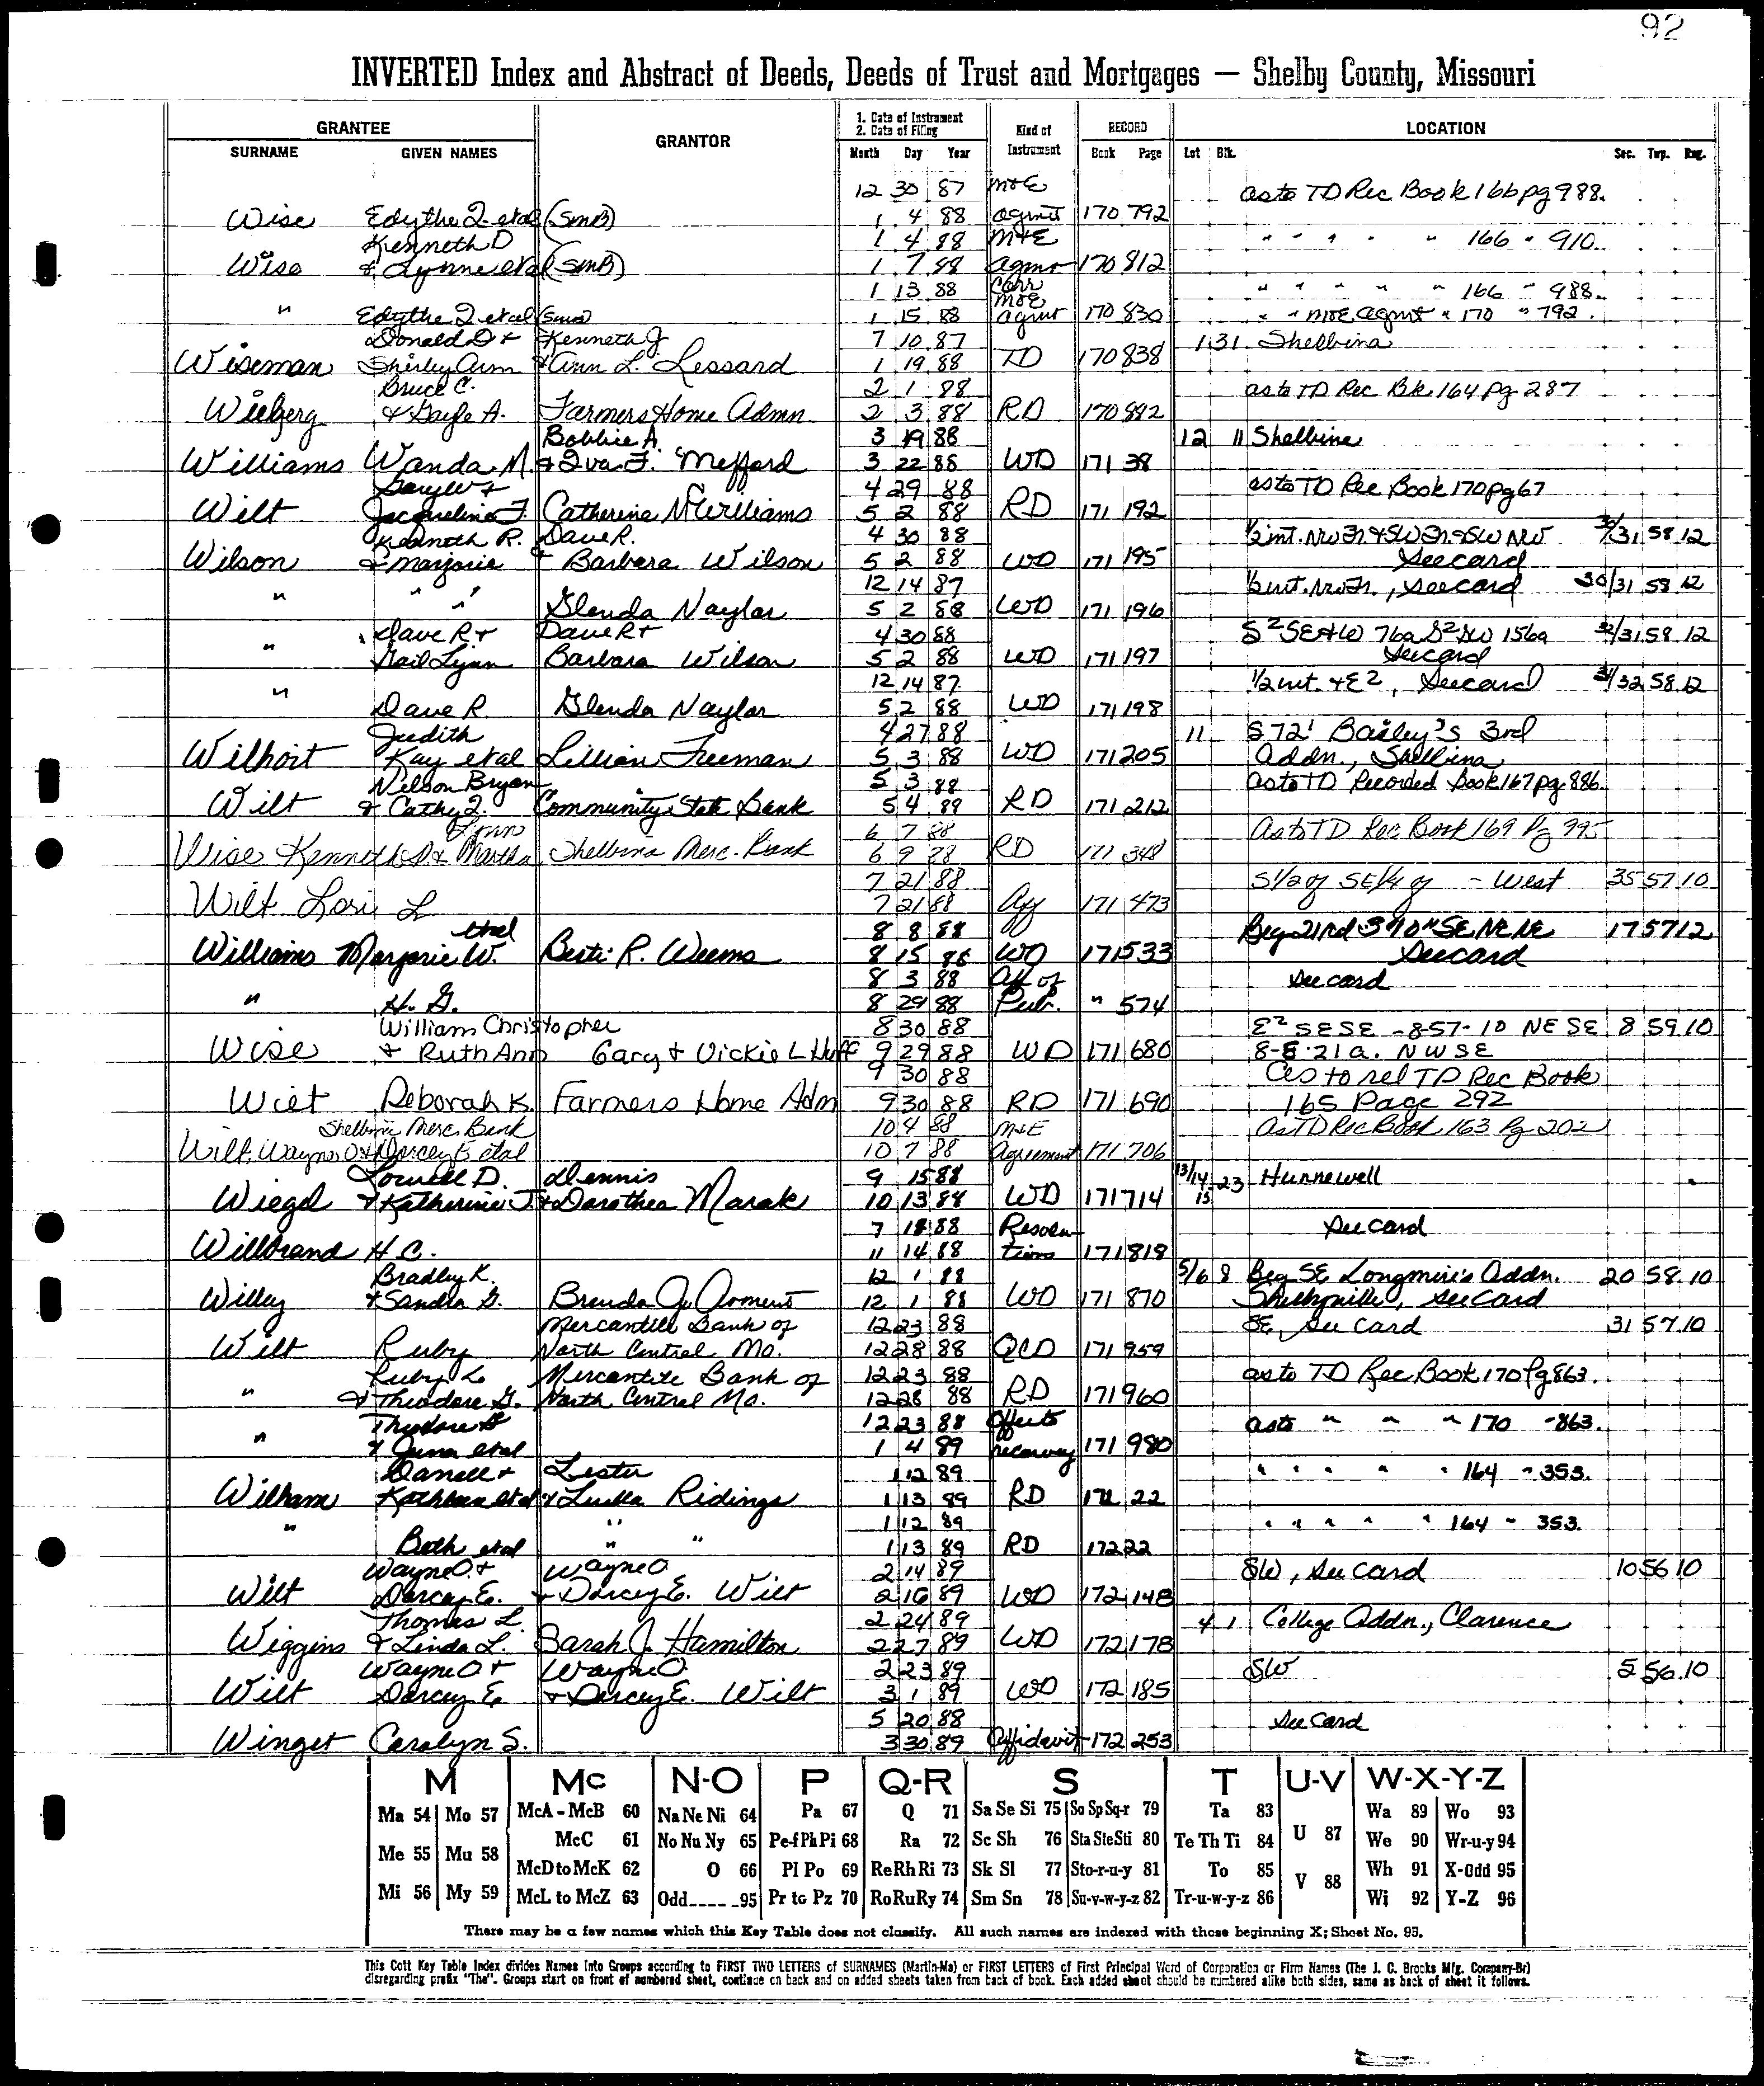 92
INVERTED Index and Abstract of Deeds, Deeds of Trust and Mortgages — Shelby County, Missouri
GRANTEE GRANTOR 1. Date of Instrument 2. Date of Filing Kind of Instrument RECORD LOCATION
SURNAME GIVEN NAMES Month Day Year Book Page Lot Blk. Sec. Twp. Rng.
12 30 87 M&E as to TD Rec Book 166 pg 988.
Wise Edythe I. etal (SMB) 1 4 88 agmt 170 792
Kenneth D 1 4 88 M&E " " " " " 166 " 910.
Wise & Lynne etal (SMB) 1 7 88 agmt 170 812
1 13 88 Corr M&E " " " " " 166 " 988.
" Edythe I. etal (SMB) 1 15 88 agmt 170 830 " " M&E agmt " 170 " 792.
Donald D & Kenneth J 7 10 87 1 31 Shelbina
Wiseman Shirley Ann & Ann L. Lessard 1 19 88 TD 170 838
Bruce C. 2 1 88 as to TD Rec Bk. 164 pg 287
Wieberg & Gayle A. Farmers Home Admn 2 3 88 RD 170 892
Bobbie A. 3 19 88 12 11 Shelbina
Williams Wanda M. & Iva F. Mefford 3 22 88 WD 171 38
Gary W & 4 29 88 as to TD Rec Book 170 pg 67
Wilt Jacqueline F. Catherine McWilliams 5 2 88 RD 171 192
Kenneth R. Dave R. 4 30 88 1/2 int. NW Fr. & SW Fr. & SW NW 30/31 58 12
Wilson & Marjorie & Barbara Wilson 5 2 88 WD 171 195 See card
12 14 87 1/2 int. NW Fr., see card 30/31 58 12
" " " Glenda Naylor 5 2 88 WD 171 196
" Dave R & Dave R & 4 30 88 S2 SE & W 76a S2 SW 156a 32/31 58 12
Gail Lynn Barbara Wilson 5 2 88 WD 171 197 See card
" 12 14 87 1/2 int. & E2, See card 31/32 58 12
Dave R Glenda Naylor 5 2 88 WD 171 198
Judith 4 27 88 11 S 72' Bailey's 3rd
Wilhoit Kay etal Lillian Freeman 5 3 88 WD 171 205 Addn., Shelbina
Nelson Bryan 5 3 88 as to TD Recorded Book 167 pg 886.
Wilt & Cathy I. Community State Bank 5 4 88 RD 171 212
Lynn 6 7 88 As to TD Rec Book 169 Pg 995
Wise Kenneth D & Martha Shelbina Merc. Bank 6 9 88 RD 171 348
7 21 88 S 1/2 of SE 1/4 of - West 35 57 10
Wilt Lori L 7 21 88 Aff 171 473
etal 8 8 88 Beg 21 rd S 90" SE NE NE 17 57 12
Williams Marjorie W. Bert R. Weems 8 15 88 WD 171 533 See card
8 3 88 Aff of see card
" H. G. 8 29 88 Pub. " 574
William Christopher 8 30 88 E2 SESE - 8-57-10 NE SE 8 59 10
Wise & Ruth Ann Gary & Vickie L Huff 9 29 88 WD 171 680 8-8-21a. NWSE
9 30 88 As to rel TD Rec Book
Wilt Deborah K. Farmers Home Adm 9 30 88 RD 171 690 165 Page 292
Shelbina Merc. Bank 10 4 88 M&E As TD Rec Book 163 Pg 202
Wilt, Wayne O & Darcey E etal 10 7 88 Agreement 171 706
Lowell D. Dennis 9 15 88 13/14 23 Hunnewell
Wiegel & Katherine J. & Dorothea Marak 10 13 88 WD 171 714 15
7 18 88 Resolu- See card
Willbrand H C. 11 14 88 tions 171 818
Bradley K. 12 1 88 5/6 8 Beg SE Longmire's Addn. 20 58 10
Willey & Sandra G. Brenda J. Aoment 12 1 88 WD 171 870 Shelbyville, See Card
Mercantile Bank of 12 23 88 SE, See Card 31 57 10
Wilt Ruby North Central Mo. 12 28 88 QCD 171 959
Ruby L. Mercantile Bank of 12 23 88 as to TD Rec Book 170 Pg 863.
" & Theodore G. North Central Mo. 12 28 88 RD 171 960
Theodore G 12 23 88 Effects as to " " " 170 - 863.
" & etal 1 4 89 171 980
Darrell & Lester 1 12 89 " " " " " 164 " 353.
Wilham Kathleen etal & Luella Ridings 1 13 89 RD 172 22
" " " 1 12 89 " " " " " 164 " 353
Beth etal 1 13 89 RD 172 22
Wayne O. & Wayne O. 2 14 89 SW, See Card 10 56 10
Wilt Darcey E. & Darcey E. Wilt 2 16 89 WD 172 148
Thomas L. 2 24 89 4 1 College Addn., Clarence
Wiggins & Linda L. Sarah J. Hamilton 2 27 89 WD 172 178
Wayne O. & Wayne O. 2 23 89 SW 5 56 10
Wilt Darcey E. & Darcey E. Wilt 3 1 89 WD 172 185
5 20 88 See Card
Winget Carolyn S. 3 30 89 Affidavit 172 253
M Mc N-O P Q-R S T U-V W-X-Y-Z
Ma 54 Mo 57 McA - McB 60 Na Ne Ni 64 Pa 67 Q 71 Sa Se Si 75 So Sp Sq-r 79 Ta 83 U 87 Wa 89 Wo 93
Me 55 Mu 58 McC 61 No Nu Ny 65 Pe-f Ph Pi 68 Ra 72 Sc Sh 76 Sta Ste Sti 80 Te Th Ti 84 We 90 Wr-u-y 94
McD to McK 62 O 66 Pl Po 69 Re Rh Ri 73 Sk Sl 77 Sto-r-u-y 81 To 85 V 88 Wh 91 X-Odd 95
Mi 56 My 59 McL to McZ 63 Odd_____95 Pr to Pz 70 Ro Ru Ry 74 Sm Sn 78 Su-v-w-y-z 82 Tr-u-w-y-z 86 Wi 92 Y-Z 96
There may be a few names which this Key Table does not classify. All such names are indexed with those beginning X; Sheet No. 95.
This Cott Key Table Index divides Names Into Groups according to FIRST TWO LETTERS of SURNAMES (Martin-Ma) or FIRST LETTERS of First Principal Word of Corporation or Firm Names (The J. C. Brooks Mfg. Company-Br)
disregarding prefix "The". Groups start on front of numbered sheet, continue on back and on added sheets taken from back of book. Each added sheet should be numbered alike both sides, same as back of sheet it follows.